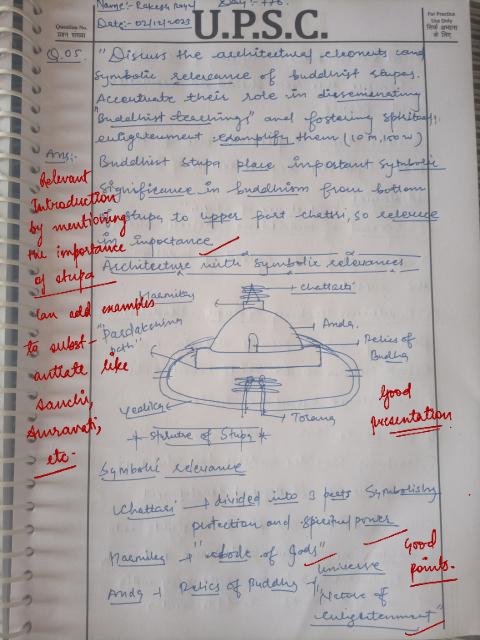 Name:- Rakesh
Day:- 776
Date:- 02/12/2023
U.P.S.C.
Question No.
प्रश्न संख्या
For Practice
Use Only
सिर्फ अभ्यास
के लिए
Q.05
"Discuss the architectural elements and
symbolic relevance of buddhist stupas.
Accentuate their role in disseminating
"Buddhist teachings" and fostering spiritual
enlightenment exemplify them (10 m, 150 w)
Ans:
Buddhist Stupa place important symbolic
significance in buddhism from bottom
of stupa to upper part chattri, so relevence
in importance
Relevant
Introduction
by mentioning
the importance
of stupa
Architecture with symbolic relevances
Can add examples
to subst-
antiate like
Sanchi,
Amravati,
etc.
Haemika
Chattari
"Pardakshina
path"
Anda
Relics of
Budha
Vedika
Torana
* Strutre of Stupa *
Good
presentation
Symbolic relevance
Chattari → divided into 3 parts Symbolishy
protection and spiritual power
Haemika → "abode of gods"
Good
points.
Anda → Relics of Buddha → Universe
"Nature of
enlightenment"